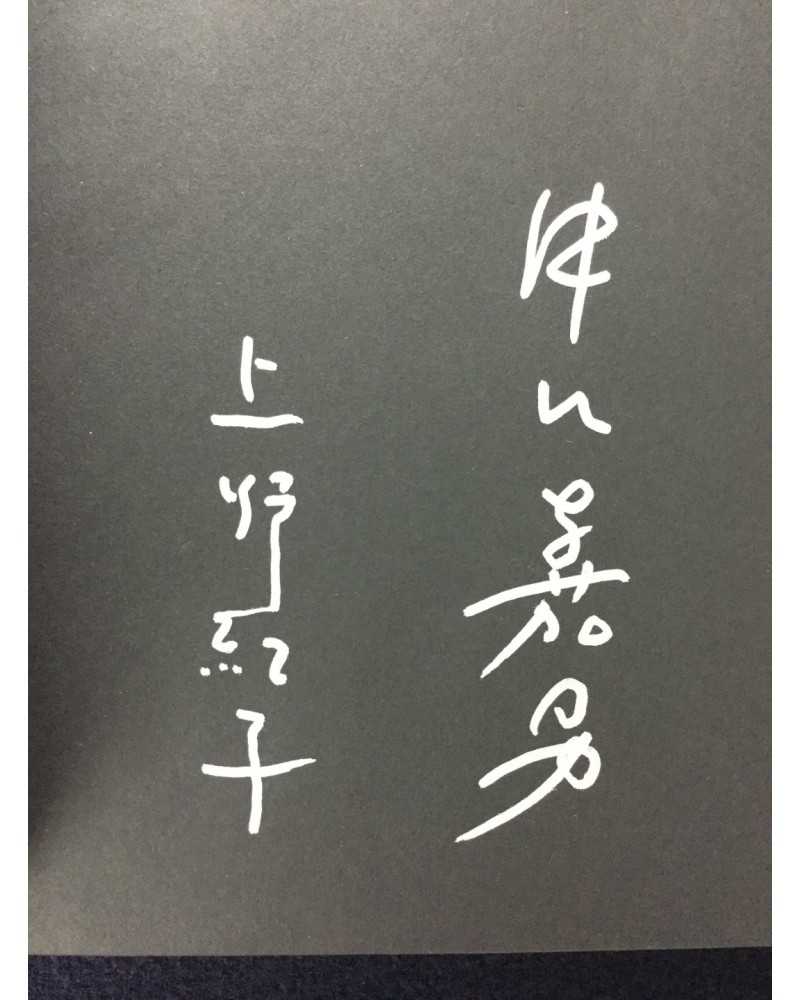 中江嘉男
上野紀子